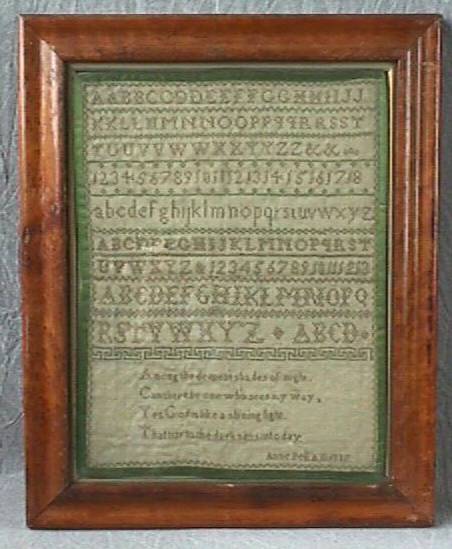 AABBCCDDEEFFGGHHIIJJ
KKLLMMNNOOPPQQRRSST
TUUVVWWXXYYZZ&&
1 2 3 4 5 6 7 8 9 10 11 12 13 14 15 16 17 18
abcdefghijklmnopqrstuvwxyz
ABCDEFGHIJKLMNOPQRST
UVWXYZ& 1 2 3 4 5 6 7 8 9 10 11 12 13
ABCDEFGHIKLMNOPQ
RSTVWXYZ ABCD
Among the deepest shades of night,
Can there be one who sees my way,
Yes God is like a shining light.
That turns the darkness into day.
Anne